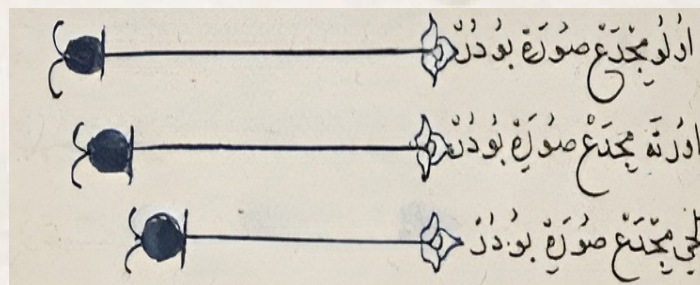 اُولُو مِجْدَعْ صُورَةْ بُودُرْ
اورْتَه مِجْدَعْ صُورَةْ بُودُرْ
مِجْدَعْ صُورَةْ بُودُرْ